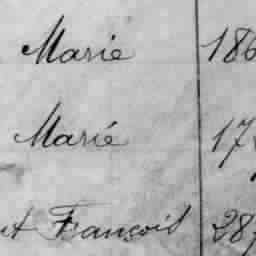 Marie 186
Marié 17
François 28